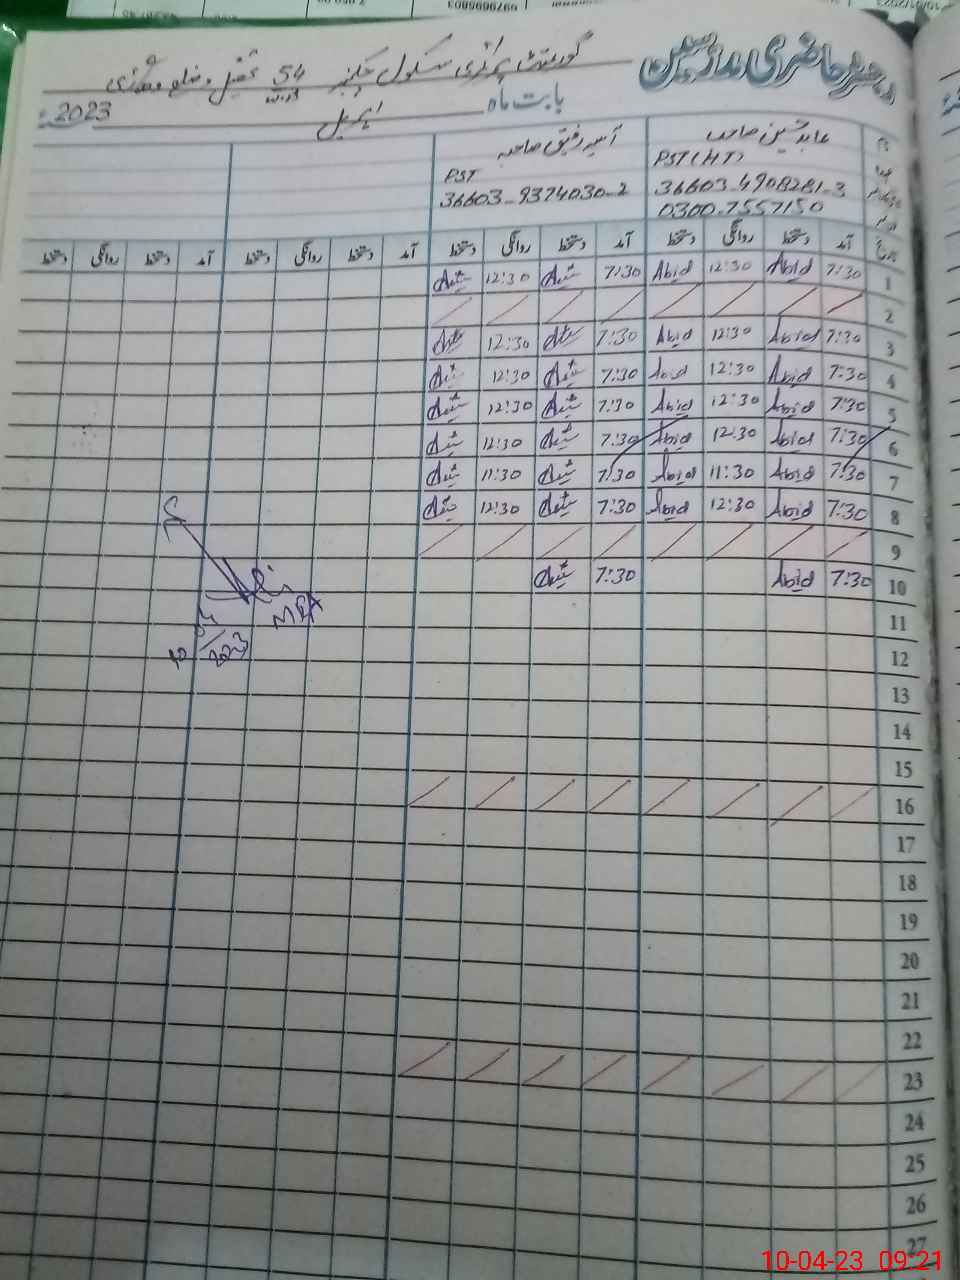 رجسٹر حاضری مدرسین
گورنمنٹ پرائمری سکول چک نمبر 54 W.B تحصیل و ضلع وہاڑی
بابت ماہ اپریل 2023
عابد حسین صاحب آسیہ رفیق صاحبہ
PST (HT) PST
36603-4908281-3 36603-9374030-2
0300-7557150
تاریخ آمد دستخط روانگی دستخط آمد دستخط روانگی دستخط آمد دستخط روانگی دستخط آمد دستخط روانگی دستخط
1 7:30 Abid 12:30 Abid 7:30 12:30
2
3 7:30 Abid 12:30 Abid 7:30 12:30
4 7:30 Abid 12:30 Abid 7:30 12:30
5 7:30 Abid 12:30 Abid 7:30 12:30
6 7:30 Abid 12:30 Abid 7:30 12:30
7 7:30 Abid 11:30 Abid 7:30 11:30
8 7:30 Abid 12:30 Abid 7:30 12:30
9
10 7:30 Abid 7:30
MEA
10/04/2023
11
12
13
14
15
16
17
18
19
20
21
22
23
24
25
26
27
10-04-23 09:21